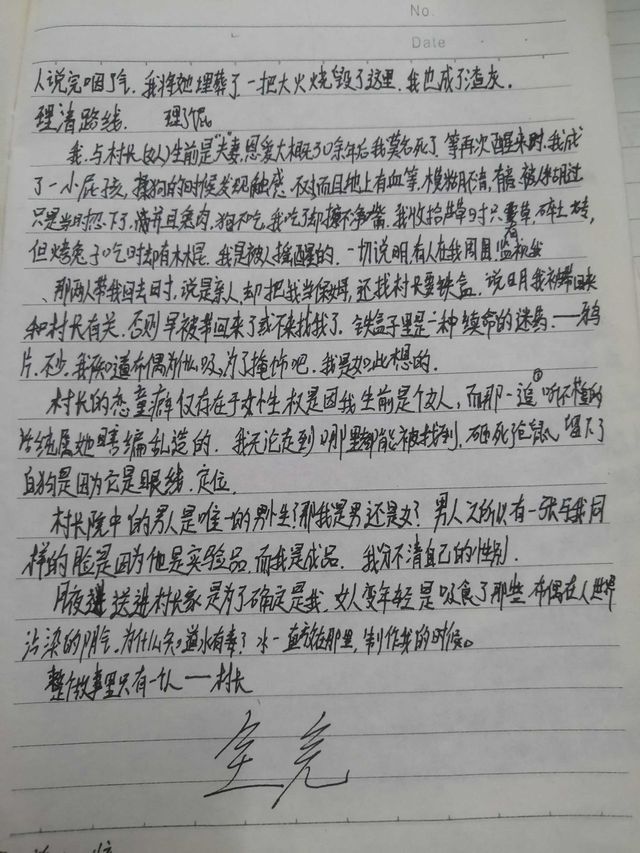 No.
Date
人说完咽了气，我将她埋葬了一把大火烧毁了这里，我也成了渣灰。
理清路线。 理了屁
我与村长(女人)生前是"夫"妻,恩爱大概30余年后我莫名死了,等再次醒来时,我成
了一小屁孩,摸狗的时候发现触感不对而且地上有血等,模糊不清,有
只是当时忽下了,滴并且臭肉,狗不吃,我吃了却擦不净嘴,我收拾芦草时只有草,碎土
但烤兔子吃时却有木棍,我是被人摇醒的,一切说明有人在我周围监视我
、那两人带我回去时,说是亲人,却把我当保姆,还找村长要铁盒,说明我被带回来
和村长有关,否则早被带回来了或不来找我了,铁盒子里是一种续命的迷药——鸦
片,不少,我知道布偶为什么吸,为了掩饰吧,我是如此想的,
村长的恋童癖仅存在于女性,权是因我生前是个女人,而那一道听不懂的
话纯属她瞎编乱造的,我无论走到哪里都能被找到,砸死了鼠,埋下了
白狗是因为它是眼线,定位,
村长院中的男人是唯一的男性,那我是男还是女?男人之所以有一张与我同
样的脸是因为他是实验品,而我是成品,我分不清自己的性别,
月夜送进村长家是为了确定是我,女人变年轻是吸食了那些布偶在人世界
沾染的阴气,为什么知道水有毒?水一直放在那里,制作我的时候。
整个故事里只有一人——村长
全完